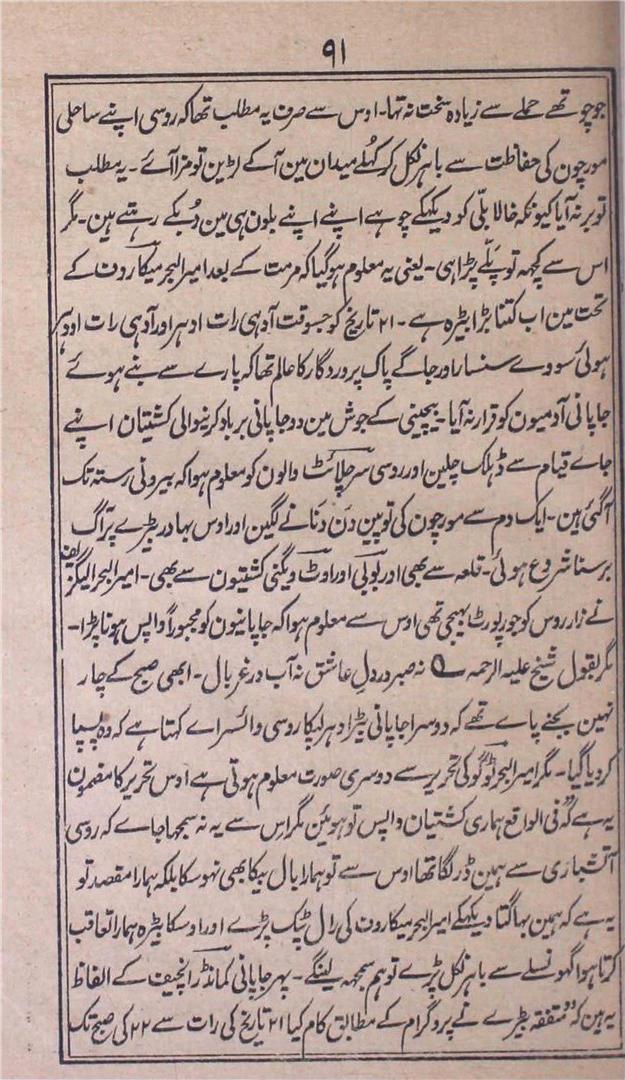 ۹۱
جو چوتھے حملے سے زیادہ سخت نہ تھا۔ اوس سے صرف یہ مطلب تھا کہ روسی اپنے ساحلی
مورچون کی حفاظت سے باہر نکل کر کھلے میدان مین آکے لڑین تو مزا آئے۔ یہ مطلب
تو بر نہ آیا کیونکہ خالا بلّی کو دیکھکے چوہے اپنے اپنے بلون ہی مین دُبکے رہتے ہین۔ مگر
اس سے کچھہ تو پلّے پڑا ہی۔ یعنی یہ معلوم ہوگیا کہ مرمت کے بعد امیر البحر میکارون کے
تحت مین اب کتنا بڑا بیڑہ ہے۔ ۲۱ تاریخ کو جسوقت آدہی رات ادہر اور آدہی رات اودہر
ہوئی سووے سنسار اور جاگے پاک پروردگار کا عالم تھا کہ پارے سے بنے ہوئے
جاپانی آدمیون کو قرار نہ آیا۔ بیچینی کے جوش مین دو جاپانی برباد کرنیوالی کشتیان اپنے
جاے قیام سے ڈہلک چلین اور روسی سرچلائٹ والون کو معلوم ہوا کہ بیرونی رستہ تک
آگئی ہین۔ ایک دم سے مورچون کی توپین دَن دَنانے لگین اور اوس بہادر بیڑے پر آگ
برسنا شروع ہوئی۔ قلعہ سے بھی اور بوبی اور اوٹ ویگنی کشتیون سے بھی۔ امیر البحر الیگزیف
نے زار روس کو جو رپورٹ بھیجی تھی اوس سے معلوم ہوا کہ جاپانیون کو مجبوراً واپس ہونا پڑا۔
مگر بقول شیخ علیہ الرحمہ ؎ نہ صبر در دلِ عاشق نہ آب در غربال۔ ابھی صبح کے چار
نہین بجنے پاے تھے کہ دوسرا جاپانی بیڑا دہر لپکا روسی وائسراے کہتا ہے کہ وہ پسپا
کردیا گیا۔ مگر امیر البحر ٹوگو کی تحریر سے دوسری صورت معلوم ہوتی ہے اوس تحریر کا مضمون
یہ ہے کہ ”فی الواقع ہماری کشتیان واپس تو ہوئین مگر اس سے یہ نہ سمجھا جاے کہ روسی
آتشباری سے ہمین ڈر لگا تھا اوس سے تو ہمارا بال بیکا بھی نہوسکا بلکہ ہمارا مقصد تو
یہ ہے کہ ہمین بھاگتا دیکھکے امیر البحر میکارون کی رال ٹپک پڑے اور اوسکا بیڑہ ہمارا تعاقب
کرتا ہوا گھونسلے سے باہر نکل پڑے تو ہم سمجھہ لینگے۔ پھر جاپانی کمانڈر انچیف کے الفاظ
یہ ہین کہ ”متفقہ بیڑے نے پروگرام کے مطابق کام کیا ۲۱ تاریخ کی رات سے ۲۲ کی صبح تک